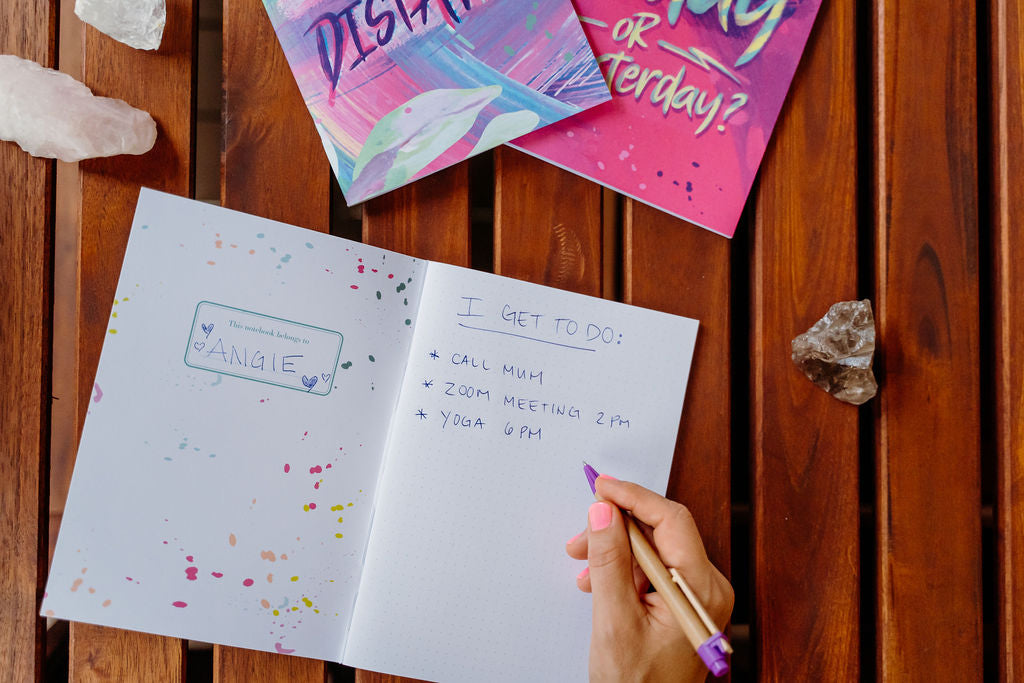 OR
This notebook belongs to
ANGIE
I GET TO DO:
* CALL MUM
* ZOOM MEETING 2PM
* YOGA 6PM